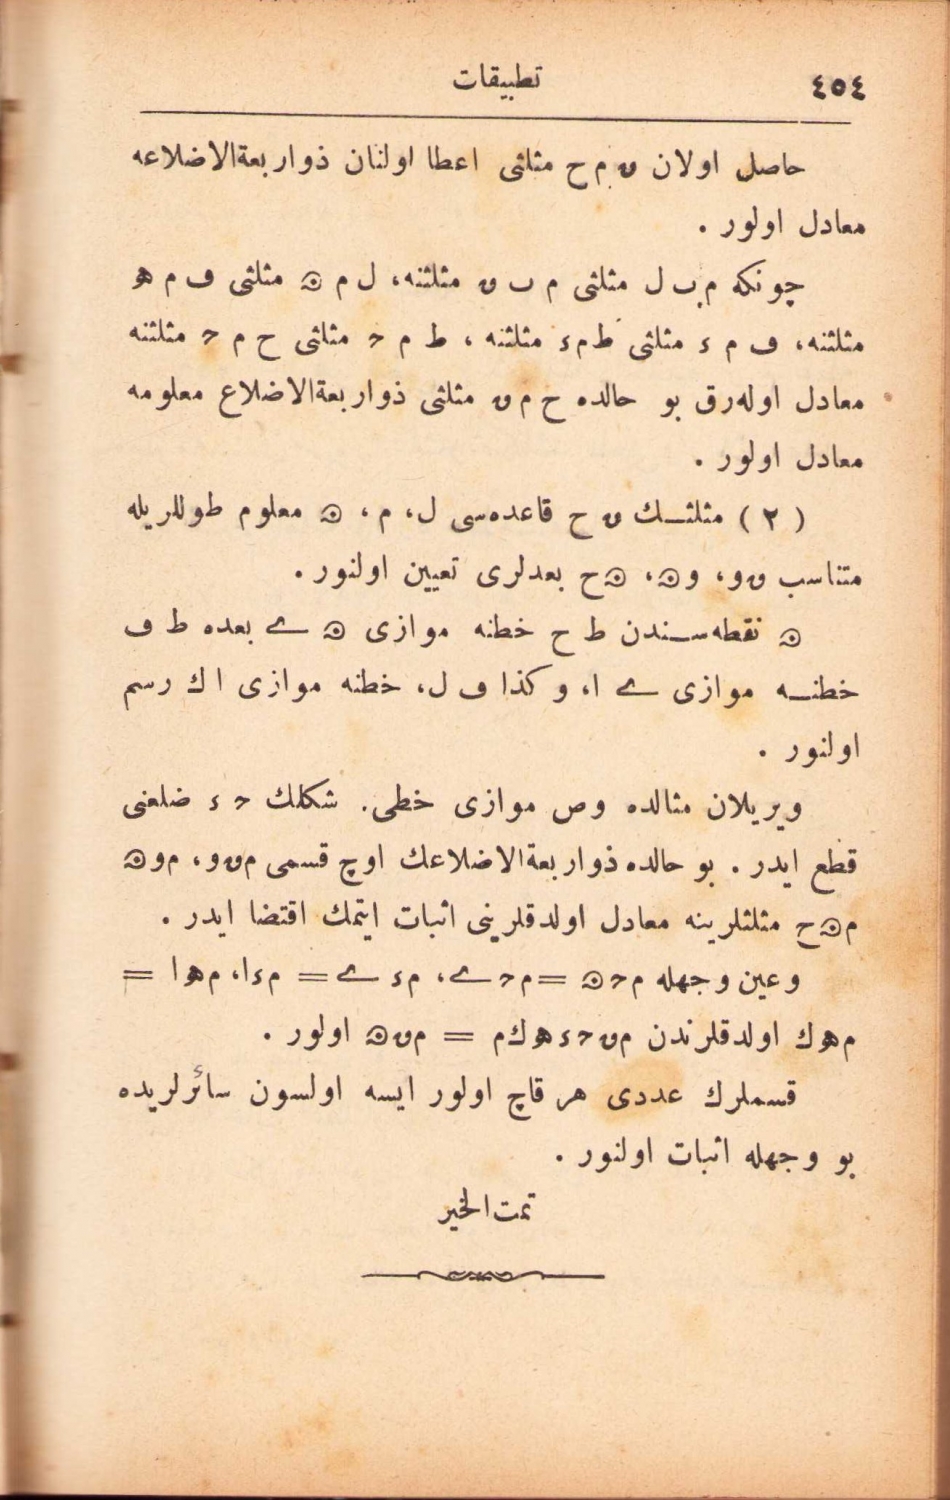 ٤٥٤ تطبیقات
حاصل اولان ں م ح مثلثی اعطا اولنان ذواربعةالاضلاعه
معادل اولور .
چونکه م ٮ ل مثلثی م ٮ ں مثلثنه، ل م ه مثلثی ڡ م ه
مثلثنه، ڡ م ء مثلثی ط م ء مثلثنه ، ط م ح مثلثی ح م ح مثلثنه
معادل اولەرق بو حالده ح م ں مثلثی ذواربعةالاضلاع معلومه
معادل اولور .
( ٢ ) مثلثـك ں ح قاعدەسی ل، م، ه معلوم طوللریله
متناسب ں و، و ه، ه ح بعدلری تعیین اولنور .
ه نقطەسـندن ط ح خطنه موازی ه ے بعده ط ڡ
خطنـه موازی ے ا، و کذا ڡ ل، خطنه موازی ا ك رسم
اولنور .
ویریلان مثالده وص موازی خطی. شکلك ح ء ضلعنی
قطع ایدر . بو حالده ذواربعةالاضلاعك اوچ قسمی م ں و، م و ه
م ه ح مثلثلرینه معادل اولدقلرینی اثبات ایتمك اقتضا ایدر .
و عین وجهله م ح ه = م ح ے، م ء ے = م ء ا، م ه ا =
م ه ك اولدقلرندن م ں ح ء ه ك م = م ں ه اولور .
قسملرك عددی هر قاچ اولور ایسه اولسون سائرلریده
بو وجهله اثبات اولنور .
تمت الخیر